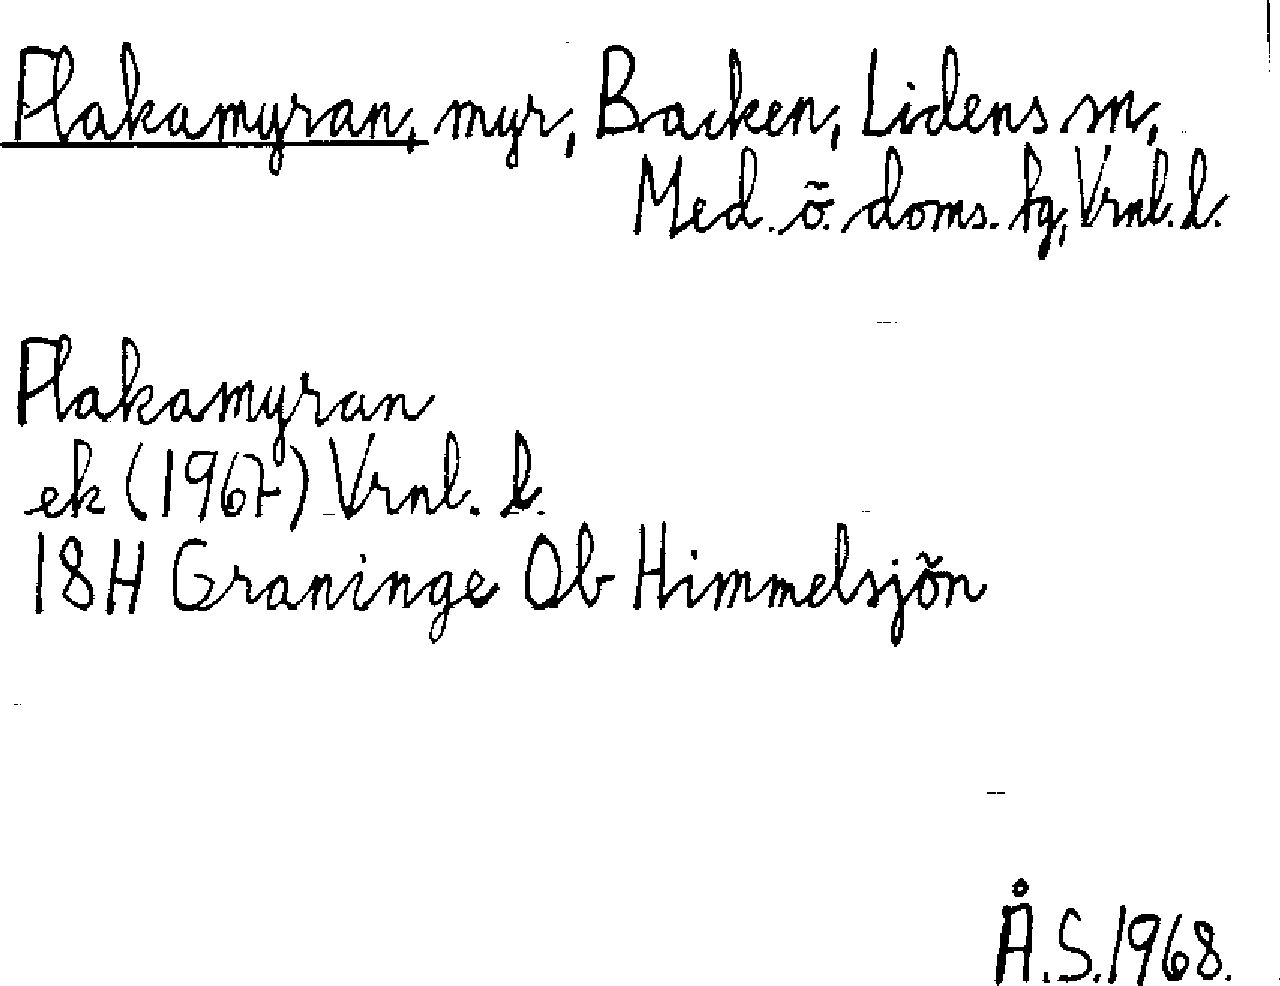 Flakamyran, myr, Backen, Lidens sn,
Med. ö. doms. tg, Vrnl. l.
Flakamyran
ek (1967) Vrnl. l.
18H Graninge Ob Himmelsjön
Å.S. 1968.